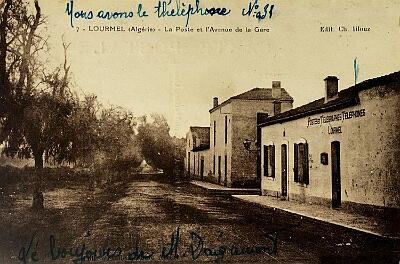 Nous avons le théléphone N° 31
7 - LOURMEL (Algérie) - La Poste et l'Avenue de la Gare
Edit. Ch. Idoux
POSTES TÉLÉGRAPHES TÉLÉPHONES
LOURMEL
de M.